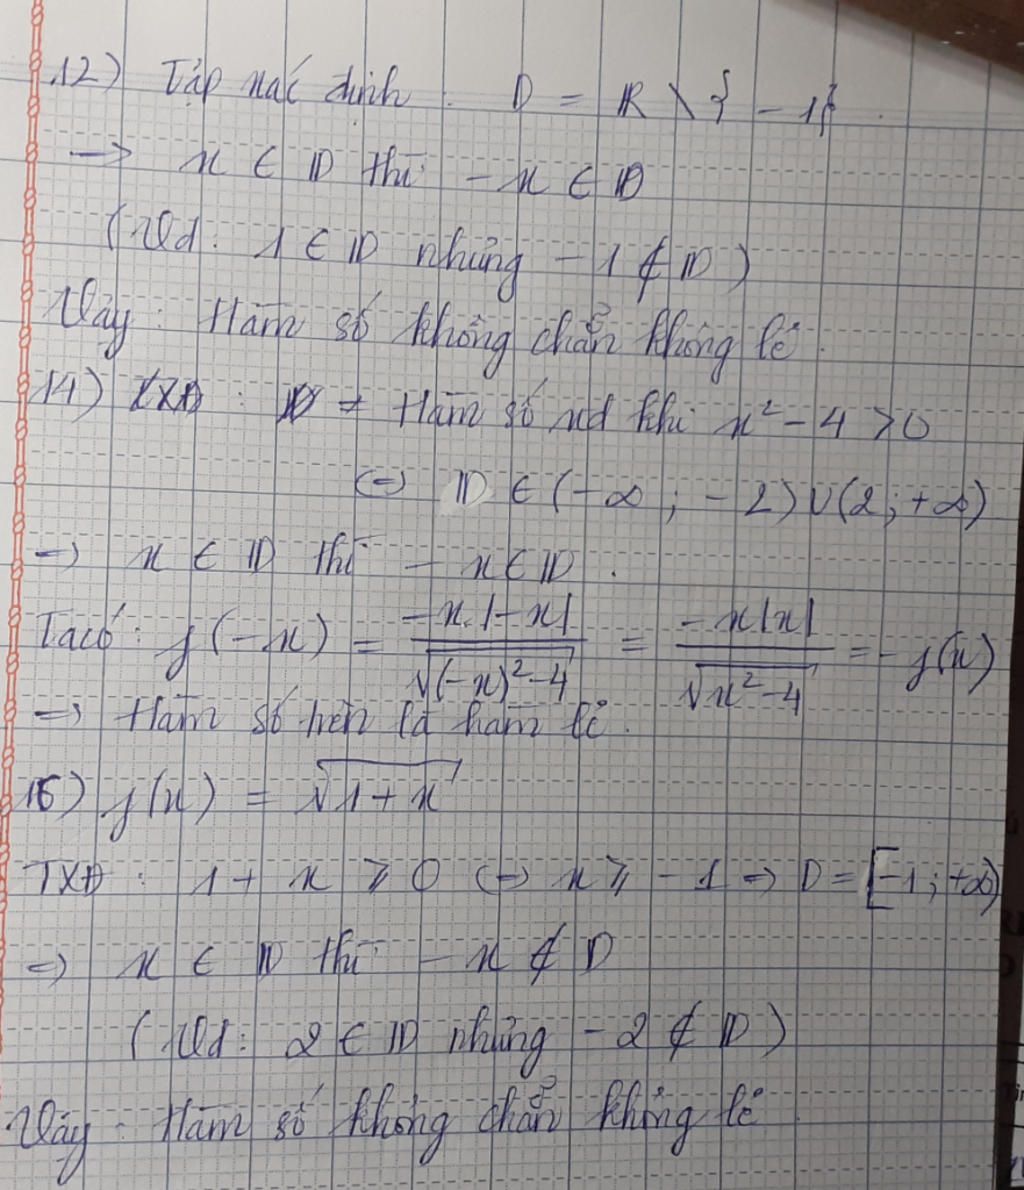 12) Tập xác định : D = R \ { -1}.
→ x ∈ D thì -x ∈ D
(Vd: 1 ∈ D nhưng -1 ∉ D)
Vậy : Hàm số không chẵn không lẻ.
14) TXĐ : D = Hàm số xđ khi x² - 4 > 0
(=) D ∈ (-∞ ; -2) ∪ (2 ; +∞)
=> x ∈ D thì -x ∈ D .
Ta có : f(-x) = \frac{-x.|-x|}{\sqrt{(-x)²-4}} = \frac{-x|x|}{\sqrt{x²-4}} = -f(x)
=> Hàm số trên là hàm lẻ.
16) f(x) = \sqrt{1+x}
TXĐ : 1 + x ⩾ 0 (=) x ⩾ -1 => D = [-1 ; +∞)
=> x ∈ D thì -x ∉ D
(Vd: 2 ∈ D nhưng -2 ∉ D)
Vậy : Hàm số không chẵn không lẻ.